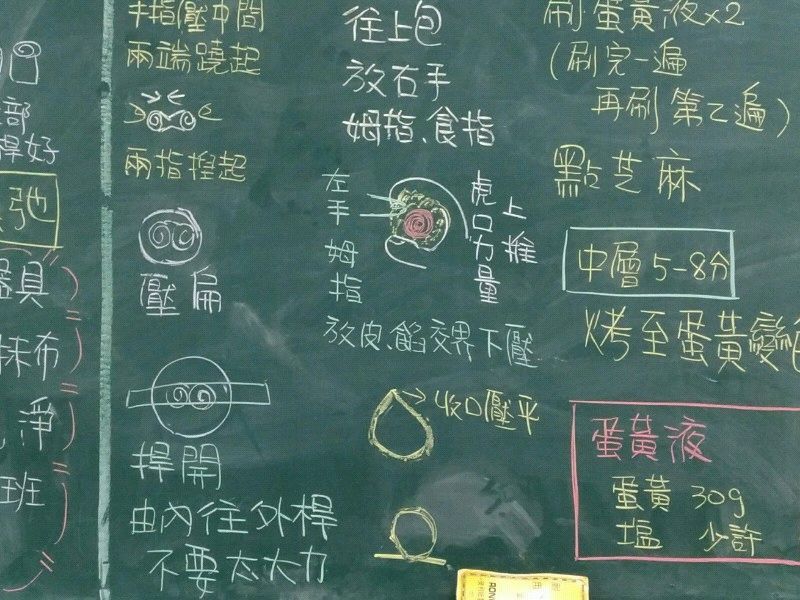 部
桿好
弛
器具
抹布
淨
班
手指壓中間
兩端蹺起
兩指捏起
壓扁
捍開
由內往外桿
不要太大力
往上包
放右手
姆指、食指
左手
姆指
虎口力量
上推
放皮、餡交界下壓
收口壓平
刷蛋黃液x2
(刷完一遍
再刷第乙遍)
點芝麻
中層5-8分
烤至蛋黃變色
蛋黃液
蛋黃 30g
塩 少許